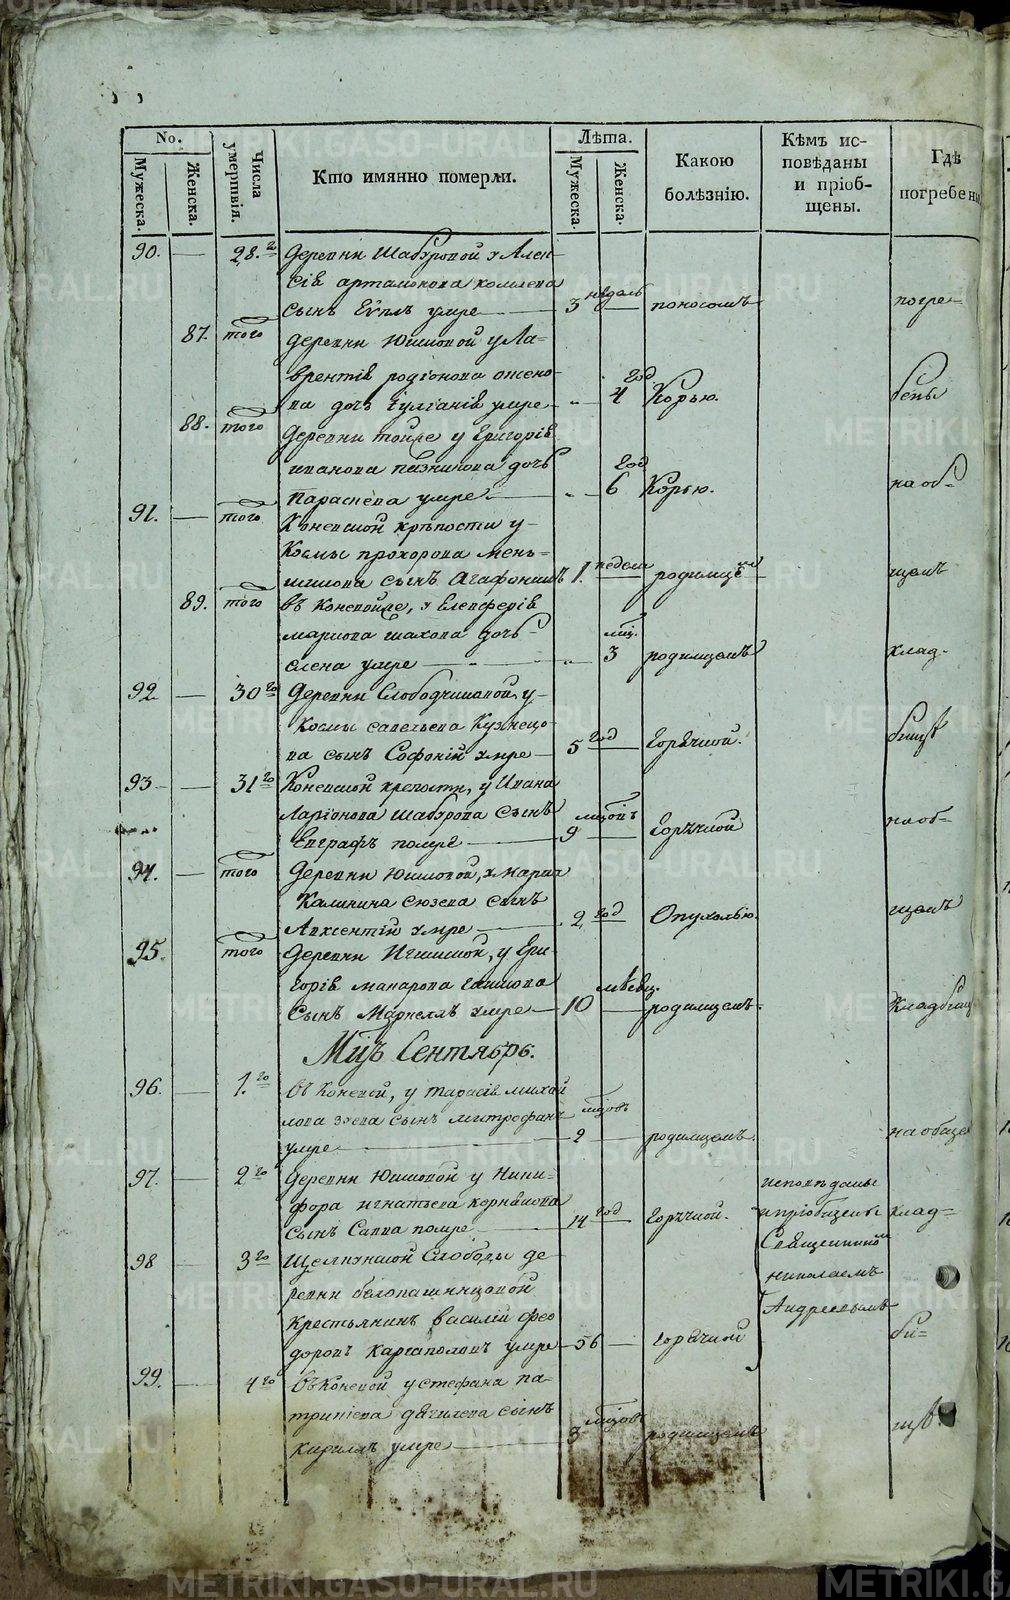 No.
Мужеска.
Женска.
Числа умертвія.
Кто имянно померли.
Лѣта.
Мужеска.
Женска.
Какою болѣзнію.
Кѣмъ исповѣданы и пріобщены.
Гдѣ погребены
90. — 28.го Деревни Шабуровой у Алек-
сія артамонова
сынъ Еѵплъ умре — 3 недель поносомъ погре-
87. того деревни Юшковой у Ла-
врентія родіонова
дочь Іуліанія умре — 4 год Корью. бены
88. того деревни тойже у Григорія
иванова дочь
параскева умре — 6 год Корью. на об-
91. — того Коневской крѣпости у
Козмы прохорова мень-
шикова сынъ Агафоникъ 1. неделя родимце щемъ
89. того въ Коневской, у Елевферія
маркова шахова дочь
елена умре — 3 мц. родимцемъ клад-
92 — 30го деревни Слободчиковой, у
Козмы савельева Кузнецо-
ва сынъ Софоній умре — 5 год горячкой. бищѣ
93 — 31го Коневской крепости, у Ивана
Ларіонова Шабурова сынъ
Евграфъ помре — 9 мцовъ горячкой на об-
94. — того Деревни Юшковой, у марка
Калинина сюзева сынъ
Авксентій умре — 2 год Опухолью. щемъ
95. того деревни Игишской, у Гри-
горія макарова
сынъ Маркеллъ умре — 10 мѣсяц. родимцемъ. Кладбищ
Мцъ Сентябрь.
96. — 1.го въ коневой, у тарасія михай
лова зуева сынъ митрофанъ
умре — 2 мцовъ родимцемъ. на обще
97. — 2го деревни Юшковой у Ники-
фора игнатьева корнѣкова
сынъ Савва помре — 14 год горячкой. исповѣданы и пріобщены клад=
98 — 3го Щелкунской Слободы де-
ревни белопашинцовой
крестьянинъ василій фео
доровъ Каргаполовъ умре — 56 — горячкой Священником николаемъ Андреевымъ би=
99. — 4го въ Коневой у стефана па-
трикіева дягилева сынъ
кириллъ умре — 3 мцовъ родимцемъ щѣ.
METRIKI.GASO-URAL.RU